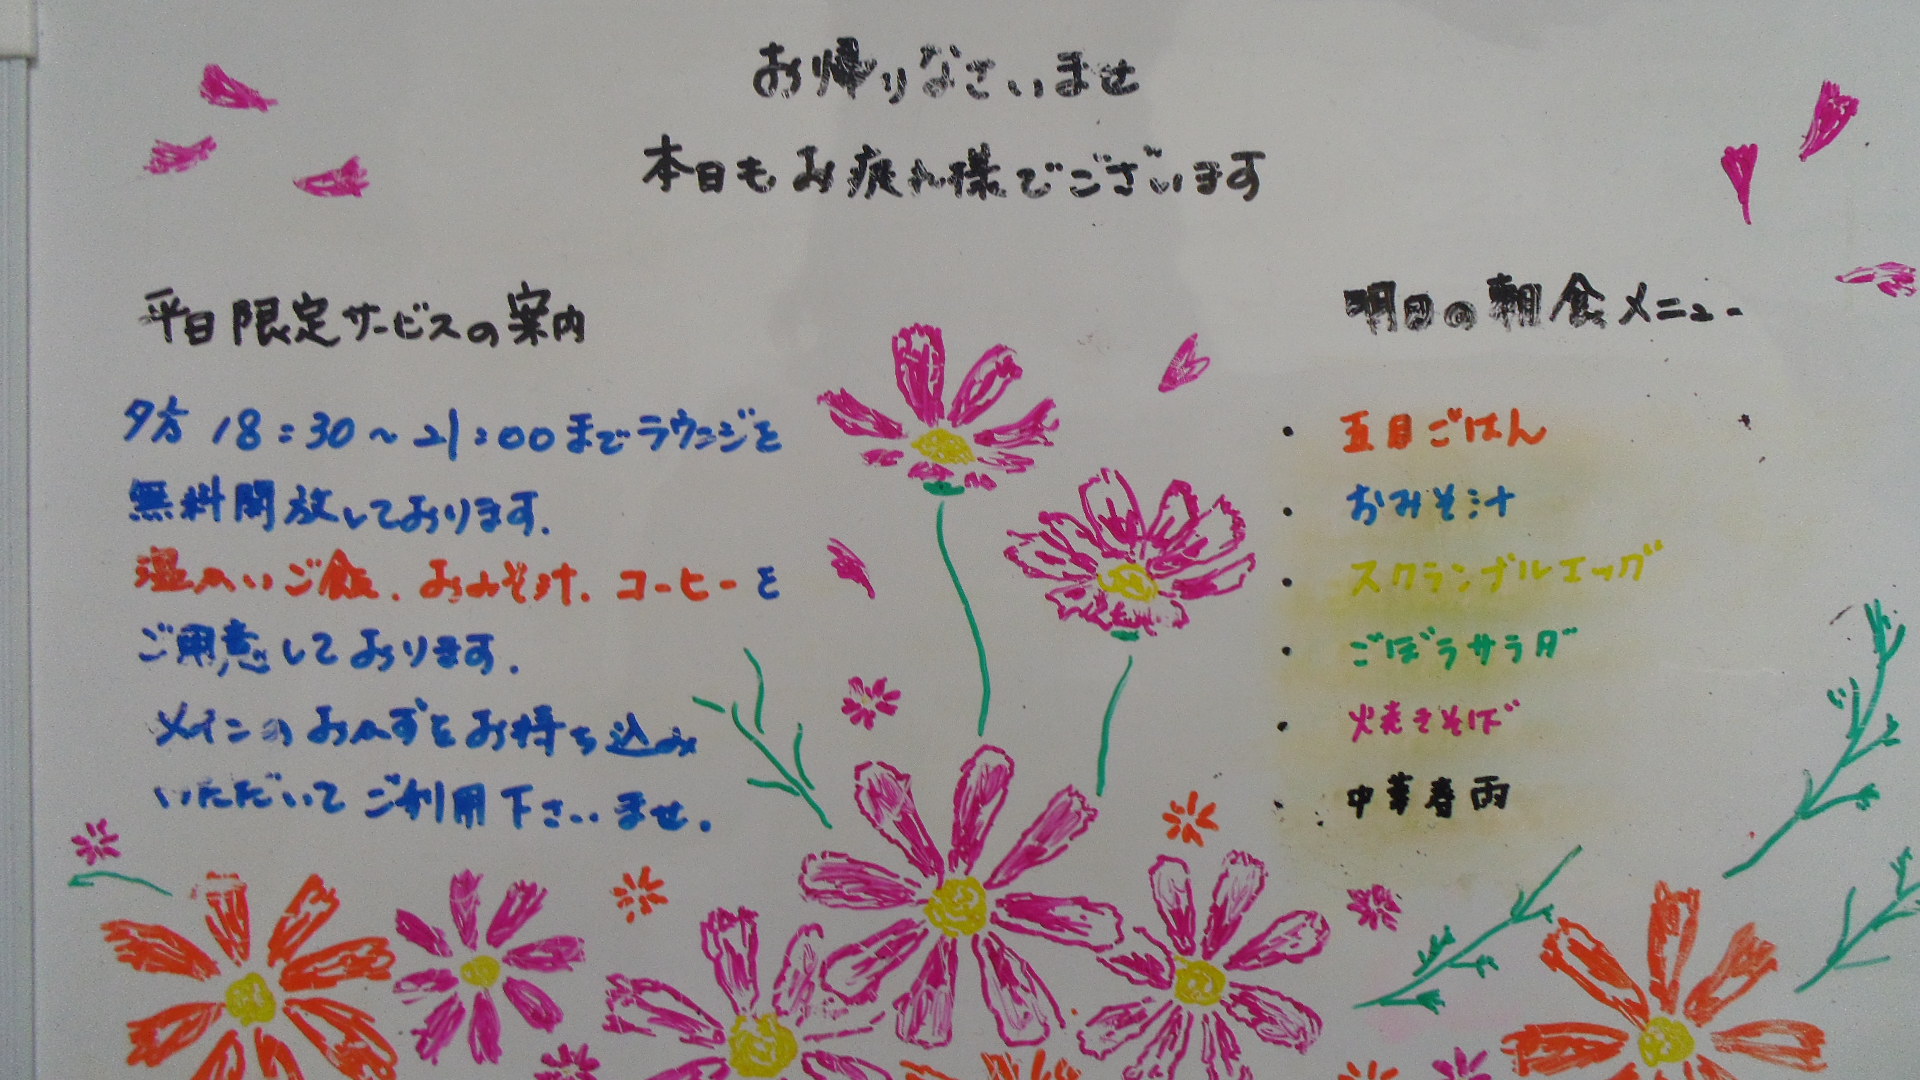 お帰りなさいませ
本日もお疲れ様でございます
平日限定サービスの案内
夕方 18:30〜21:00までラウンジを
無料開放しております.
温かいご飯.おみそ汁.コーヒーを
ご用意しております.
メインのおかずをお持ち込み
いただいてご利用下さいませ.
明日の朝食メニュー
・ 五目ごはん
・ おみそ汁
・ スクランブルエッグ
・ ごぼうサラダ
・ 焼きそば
・ 中華春雨